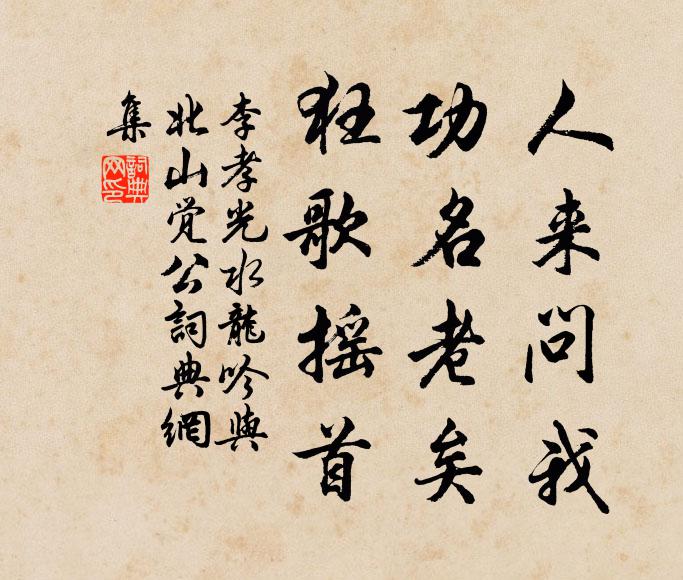 人来问我
功名老矣
狂歌摇首
李孝光水龍吟與
北山觉公詞典網
集
詞典
网印